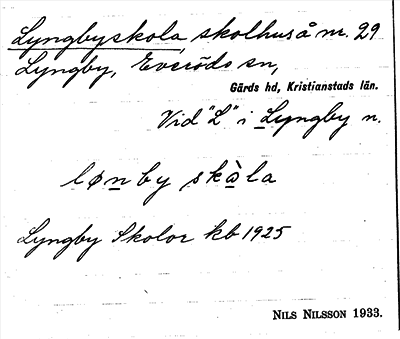 Lyngbyskola, skolhus å nr. 29
Lyngby, Everöds sn,
Gärds hd, Kristianstads län.
Vid "L" i Lyngby n.
lønby skὰla
Lyngby Skolor kb 1925
NILS NILSSON 1933.